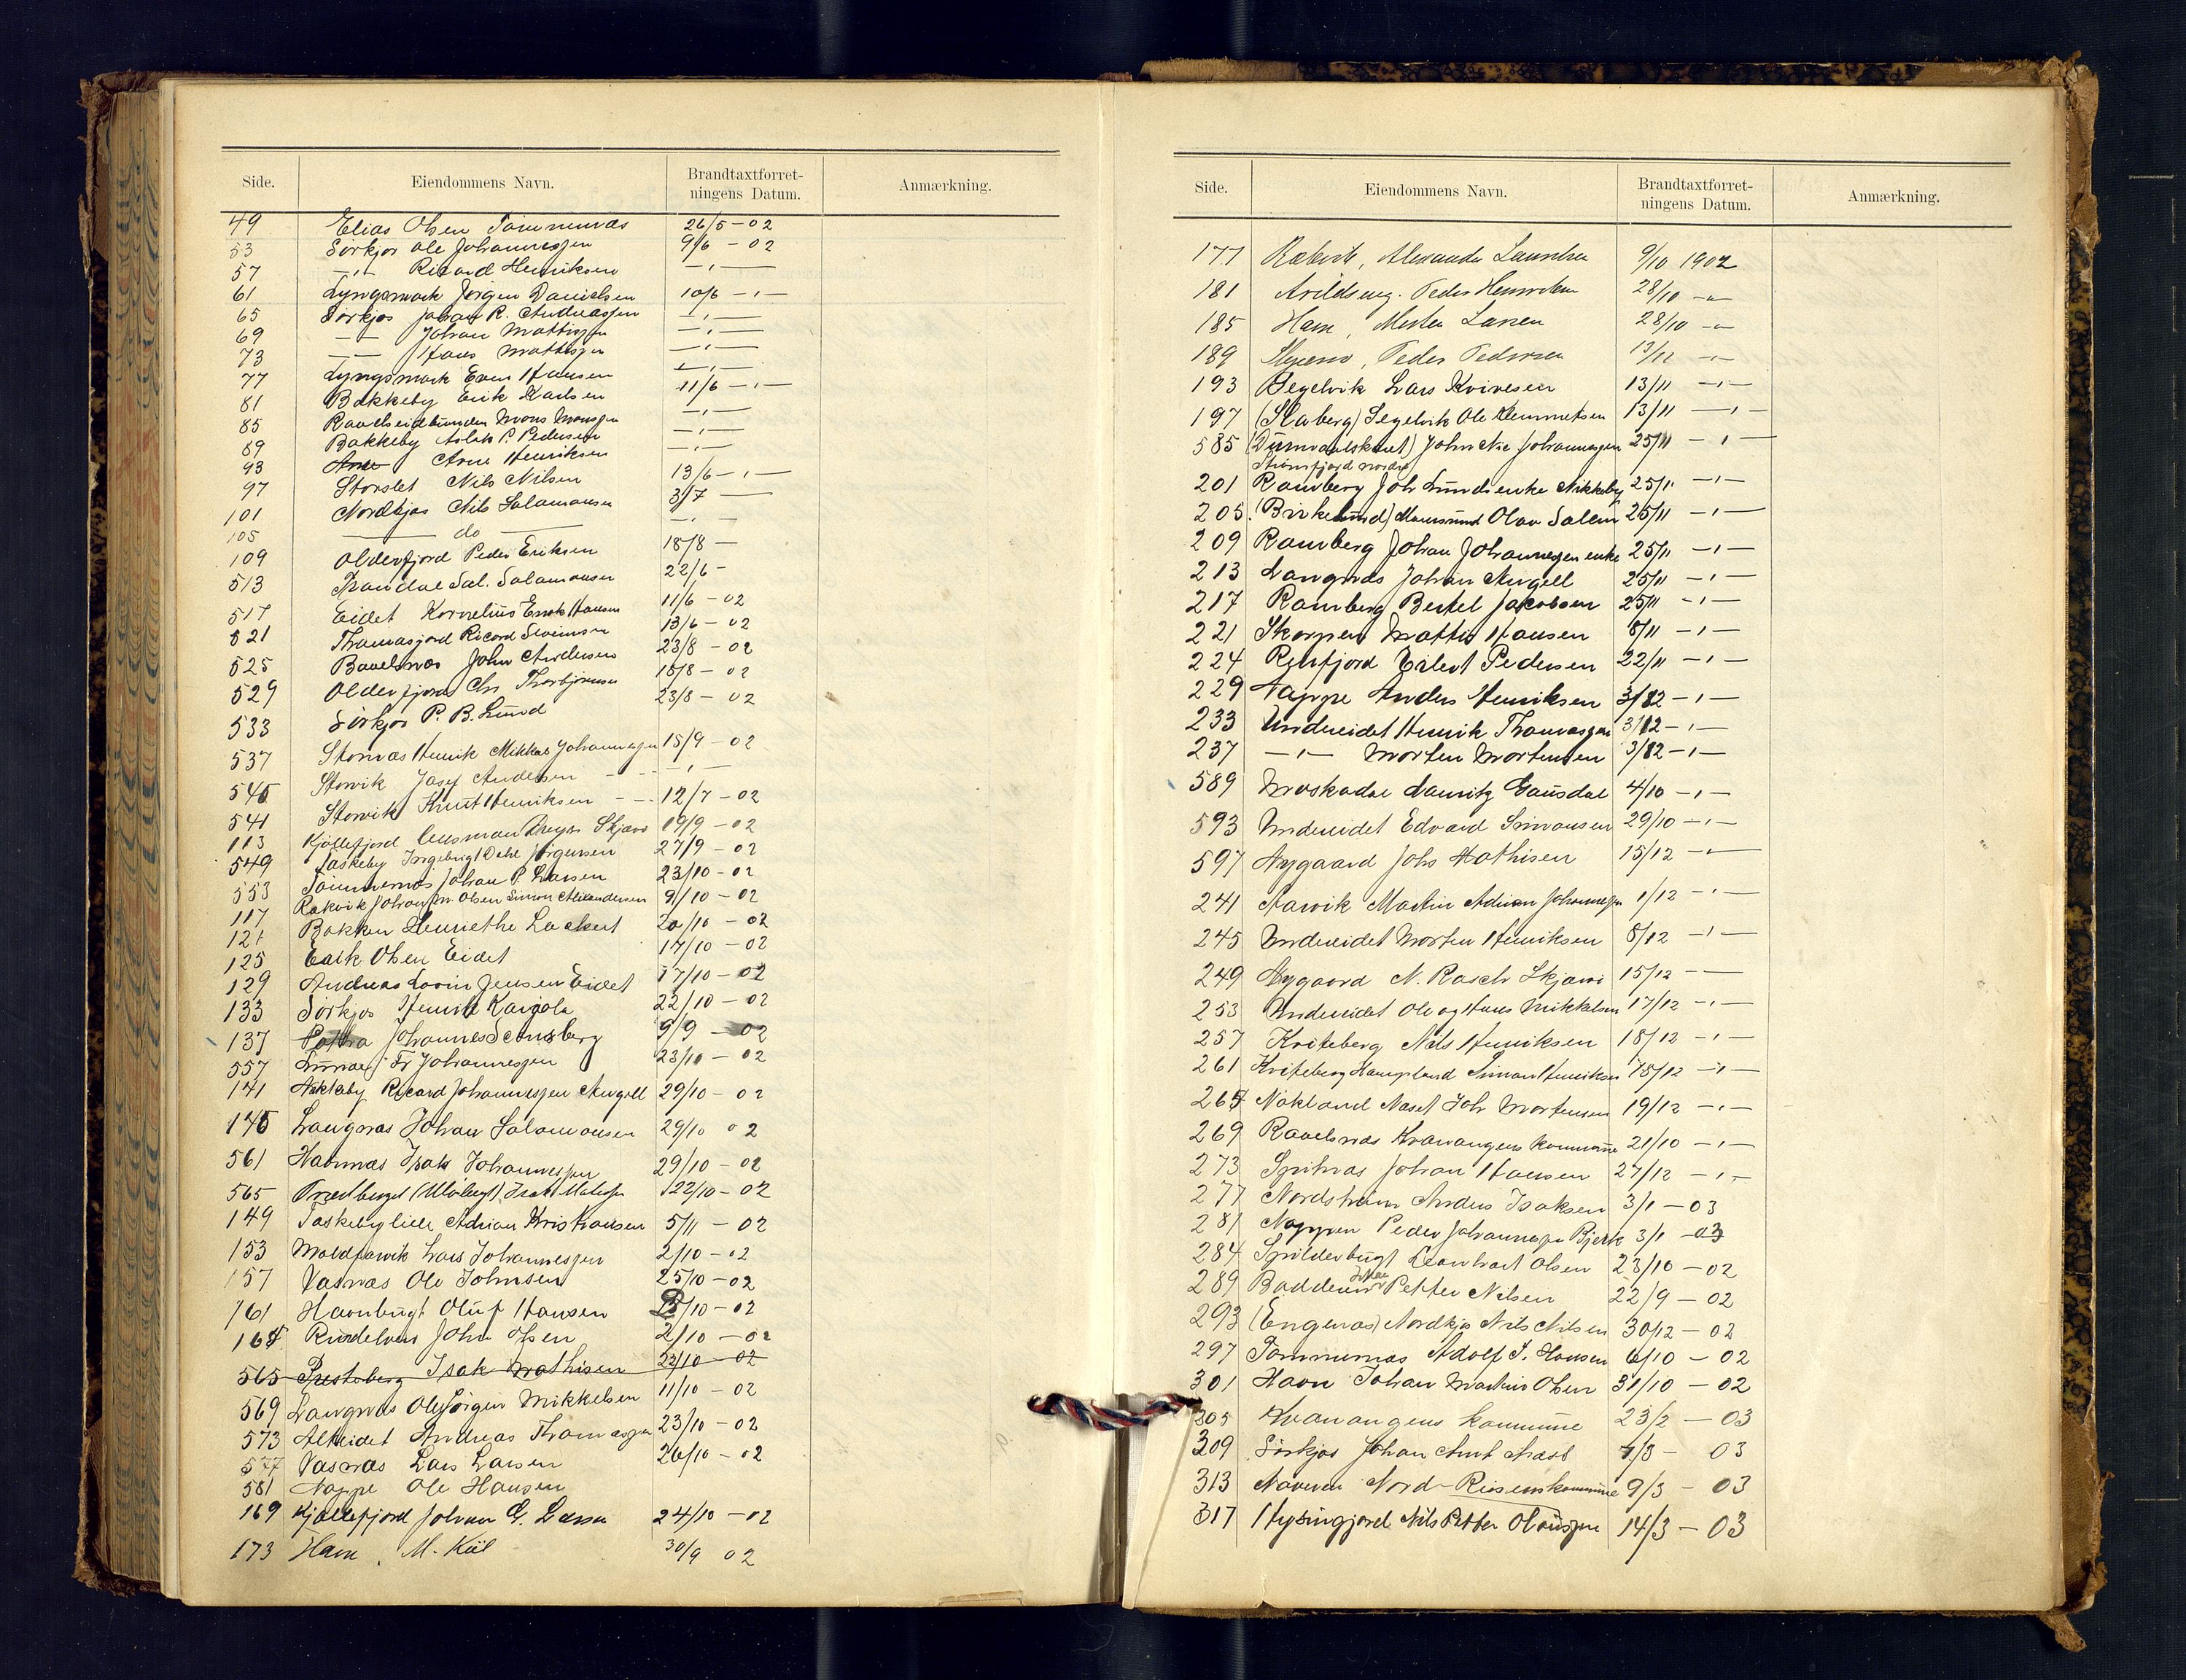 Side. Eiendommens Navn. Brandtaxtforret-
ningens Datum. Anmærkning.
49 Elias Olsen 26/5 - 02
53 Sörkjos Ole Johannessen 9/6 - 02
57 -"- Ricard Henriksen -"-
61 Lyngsmark Jörgen Danielsen 10/6 -"-
65 Sörkjos Johan R. Andreassen -"-
69 -"- Johan Mattissen -"-
73 -"- Hans Mattissen -"-
77 Lyngsmark Even Hansen -"-
81 Bakkeby Erik Karlsen 11/6 -"-
85 Mons Monsen -"-
89 Bakkeby Aslak P. Pedersen -"-
93 Arne Henriksen -"-
97 Storslet Nils Nilsen 13/6 -"-
101 Nordkjos Nils Salamonsen 3/7 —
105 — do — -"-
109 Olderfjord Peder Eriksen 18/8 —
513 Sal. Salamonsen 22/6 -
517 Eidet Kornelius Hansen 11/6 - 02
521 Ricard 13/6 - 02
525 John Andersen 23/8 - 02
529 Olderfjord Chr. Thorbjörnsen 18/8 - 02
533 Sörkjos P. B. Lund 23/8 - 02
537 Stornæs Henrik Mikkal Johannessen 15/9 - 02
545 Storvik Josef Andersen -"-
541 Storvik Knut Henriksen - - 12/7 - 02
113 Kjöllefjord Skjævö 19/9 - 02
549 Taskeby Ingebrigt Dahl Jörgensen 27/9 - 02
553 Tömmernæs Johan P. Larsen 23/10 - 02
117 Rakvik Johan M. Olsen Simon Alexandersen 9/10 - 02
121 Bakken Henriethe Lackert 20/10 - 02
125 Erik Olsen Eidet 17/10 - 02
129 Andreas Jensen Eidet 17/10 - 02
133 Sörkjos Henrik 22/10 - 02
137 Johannes 9/9 - 02
557 Fr Johannessen 23/10 - 02
141 Nikkeby Ricard Johannessen Angell 29/10 - 02
145 Langnæs Johan Salamonsen 29/10 02
561 Havnnæs Isak Johannessen 29/10 - 02
565 Isak 22/10 - 02
149 Taskeby lille Adrian Kristiansen 5/11 - 02
153 Lars Johannessen 2/10 - 02
157 Vasnæs Ole Johnsen 25/10 - 02
161 Havnbugt Oluf Hansen /10 - 02
165 John Olsen 2/10 - 02
565 Isak Mathisen 22/10 - 02
569 Langnæs Ole Jörgen Mikkelsen 11/10 - 02
573 Alteidet Andreas Thomassen 23/10 - 02
577 Vasnæs Lars Larsen 26/10 - 02
581 Nappe Ole Hansen
169 Kjöllefjord Johan G. Larsen 24/10 - 02
173 Havn, M. Kiil 30/9 02
Side. Eiendommens Navn. Brandtaxtforret-
ningens Datum. Anmærkning.
177 Rakvik, Alexander 9/10 1902
181 Arildseng. Peder Henriksen 28/10 -"-
185 Havn, Larsen 28/10 -"-
189 Peder Pedersen 12 -"-
193 Segelvik Lars 13/11 -"-
197 (Slaberg) Segelvik Ole Klemmetsen 13/11 -"-
585 John Nic Johannessen 25/11 -"-
Strömfjord nordre
201 Ramberg Joh Lunds enke Nikkeby 25/11 -"-
205 (Birkelund) Maursund Olav Salem 25/11 -"-
209 Ramberg Johan Johannessen enke 25/11 -"-
213 Langnæs Johan Angell 25/11 -"-
217 Ramberg Bertel Jakobsen 25/11 -"-
221 Skorpen Mattis Hansen 8/11 -"-
224 Reisfjord Eilert Pedersen 22/11 -"-
229 Nappe Anders Henriksen 3/12 -"-
233 Undereidet Henrik Thomassen 3/12 -"-
237 -"- Morten Mortensen 3/12 -"-
589 Moskodal Lauritz Gausdal 4/10 -"-
593 Undereidet Edvard Simonsen 29/10 -"-
597 Nygaard Johs Mathisen 15/12 -"-
241 Aarvik Martin Adrian Johannessen 1/12 -"-
245 Undereidet Morten Henriksen 8/12 -"-
249 Nygaard N. Rasch Skjævö 15/12 -"-
253 Undereidet Ole og Hans Mikkelsen 17/12 -"-
257 Kviteberg Nils Henriksen 18/12 -"-
261 Kviteberg Simon Henriksen 18/12 -"-
265 Nökland Næset Joh Mortensen 19/12 -"-
269 Kvænangens kommune 21/10 -"-
273 Johan Hansen 27/12 -"-
277 Nordström Anders Isaksen 3/1 - 03
281 Nappen Peder Johannessen Bjerk 3/1 - 03
284 Spilderbugt Leonhart Olsen 23/10 - 02
289 Badderen Petter Nilsen 22/9 - 02
293 (Engenæs) Nordkjos Nils Nilsen 30/12 - 02
297 Tömmernæs Adolf S. Hansen 6/10 - 02
301 Havn Johan Martin Olsen 31/10 - 02
305 Kvænangens kommune 23/2 - 03
309 Sörkjos Johan Arnt 7/3 - 03
313 Naveren Nord-Reisens kommune 9/3 - 03
317 Hysingjord Nils Petter Olaussen 14/3 - 03